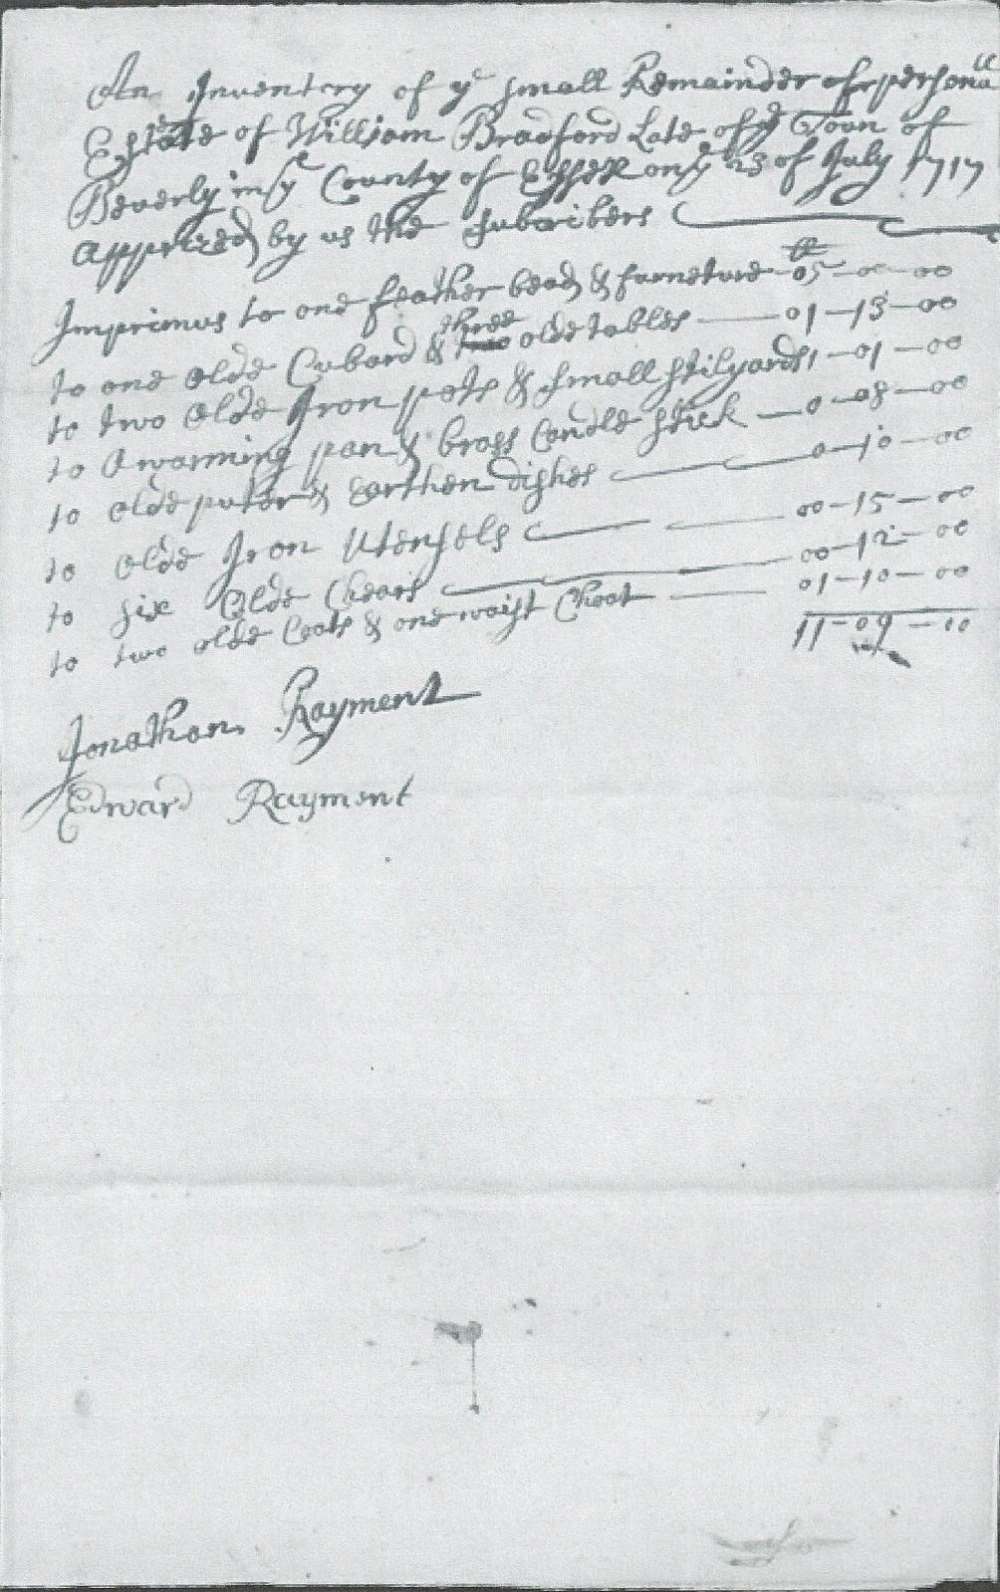 An Inventory of ye small Remainder of personall
Estate of William Bradford Late of ye Toun of
Beverly in ye County of Essex on ye 23 of July 1717
apprized by us the subscribers
Imprimus to one feather bead & furneture 05-00-00
to one olde Cubard & three olde tables 01-13-00
to two olde Iron pots & small stilyards 1-01-00
to A warming pan & brass Candle stick 0-08-00
to olde puter & Earthen dishes 0-10-00
to olde Iron Utensels 00-15-00
to six olde Chears 00-12-00
to two olde Coats & one waist Choat 01-10-00
11-09-00
Jonathan Rayment
Edward Rayment